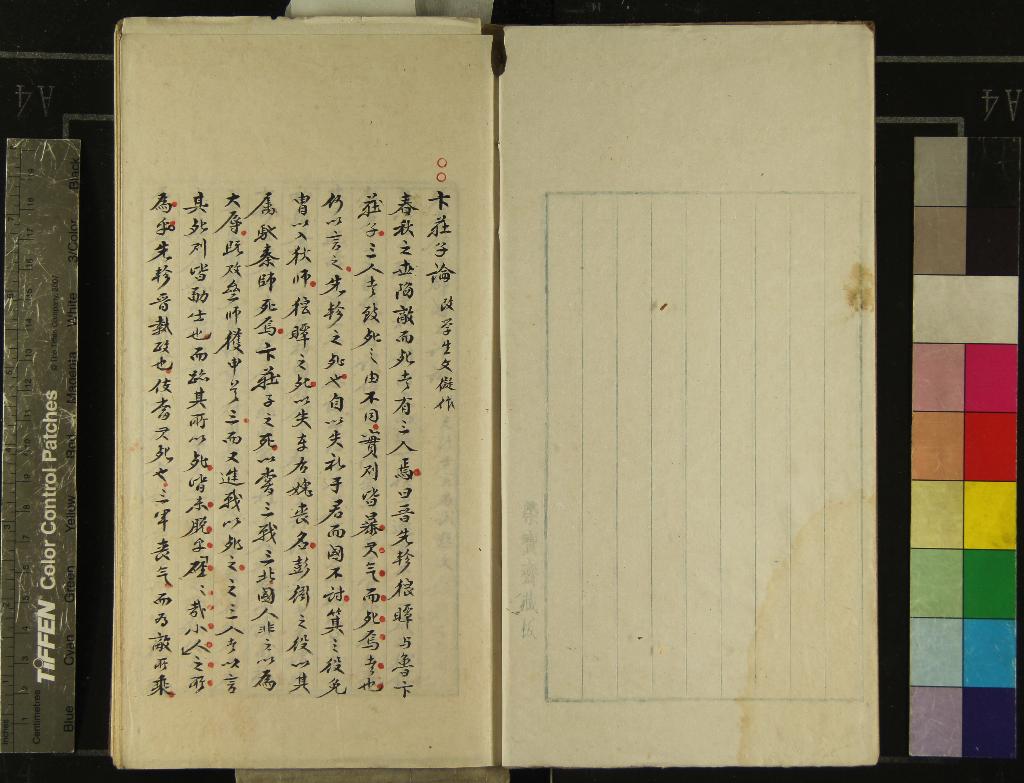 卞莊子論 改学生文僟作
春秋之世陷敵而死者有三人焉曰晉先軫狼瞫与魯卞
莊子三人者致死之由不同實則皆暴其气而死焉者也
何以言之先軫之死也自以失礼于君而國不討箕之役免
胄以入狄師狼瞫之死以失車右媿喪名彭衙之役以其
属馳秦師死焉卞莊子之死以養三戰三北國人非之以為
大辱既欬魯師獲甲首三而又進我以死之之三人者以言
其死則皆勈士也而跡其所以死皆未脱乎硜〻哉小人之所
為乎先軫晉執政也使者其死也三軍喪气而为敵所乘
榮寶齋藏板
TIFFEN Color Control Patches
© The Tiffen Company, 2007
Blue Cyan Green Yellow Red Magenta White 3/Color Black
Inches
Centimetres
A4
A4